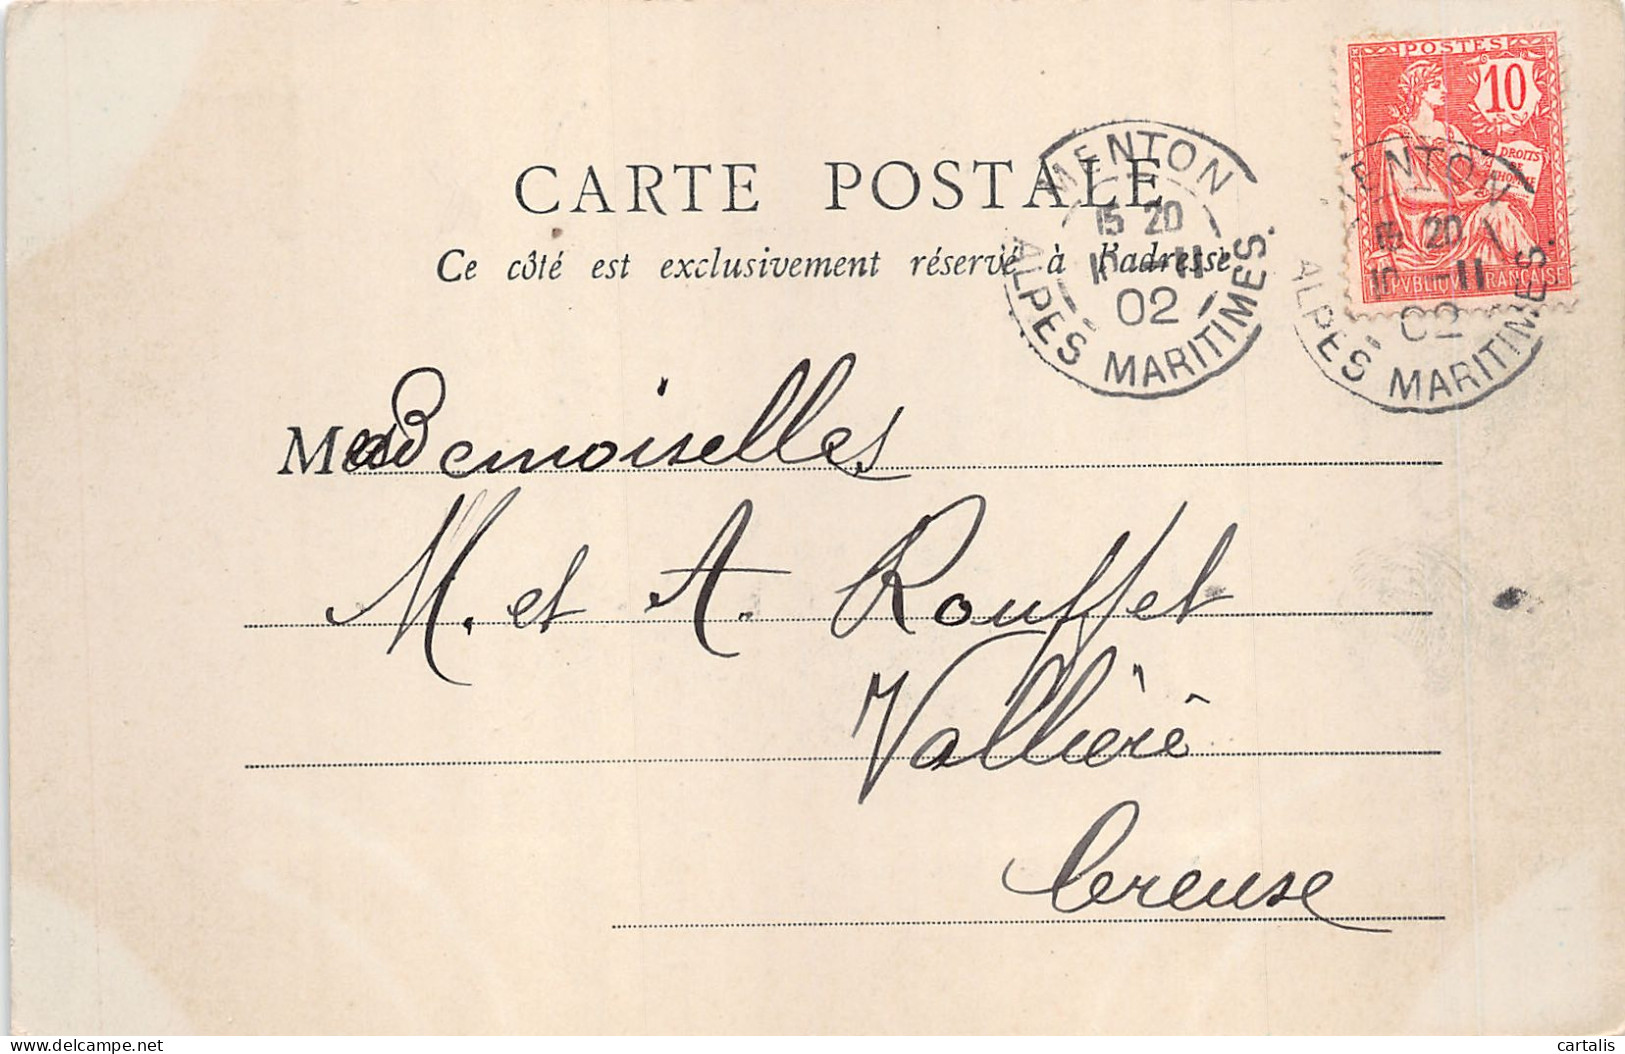 POSTES
10
DROITS
DE
L'HOMME
REPVBLIQVE FRANÇAISE
MENTON
15 20
11
02
ALPES MARITIMES.
MENTON
15 20
11
02
ALPES MARITIMES.
CARTE POSTALE
Ce côté est exclusivement réservé à l'adresse
Mesdemoiselles
M. et A. Rouffet
Vallière
Creuse
cartalis
delcampe.net